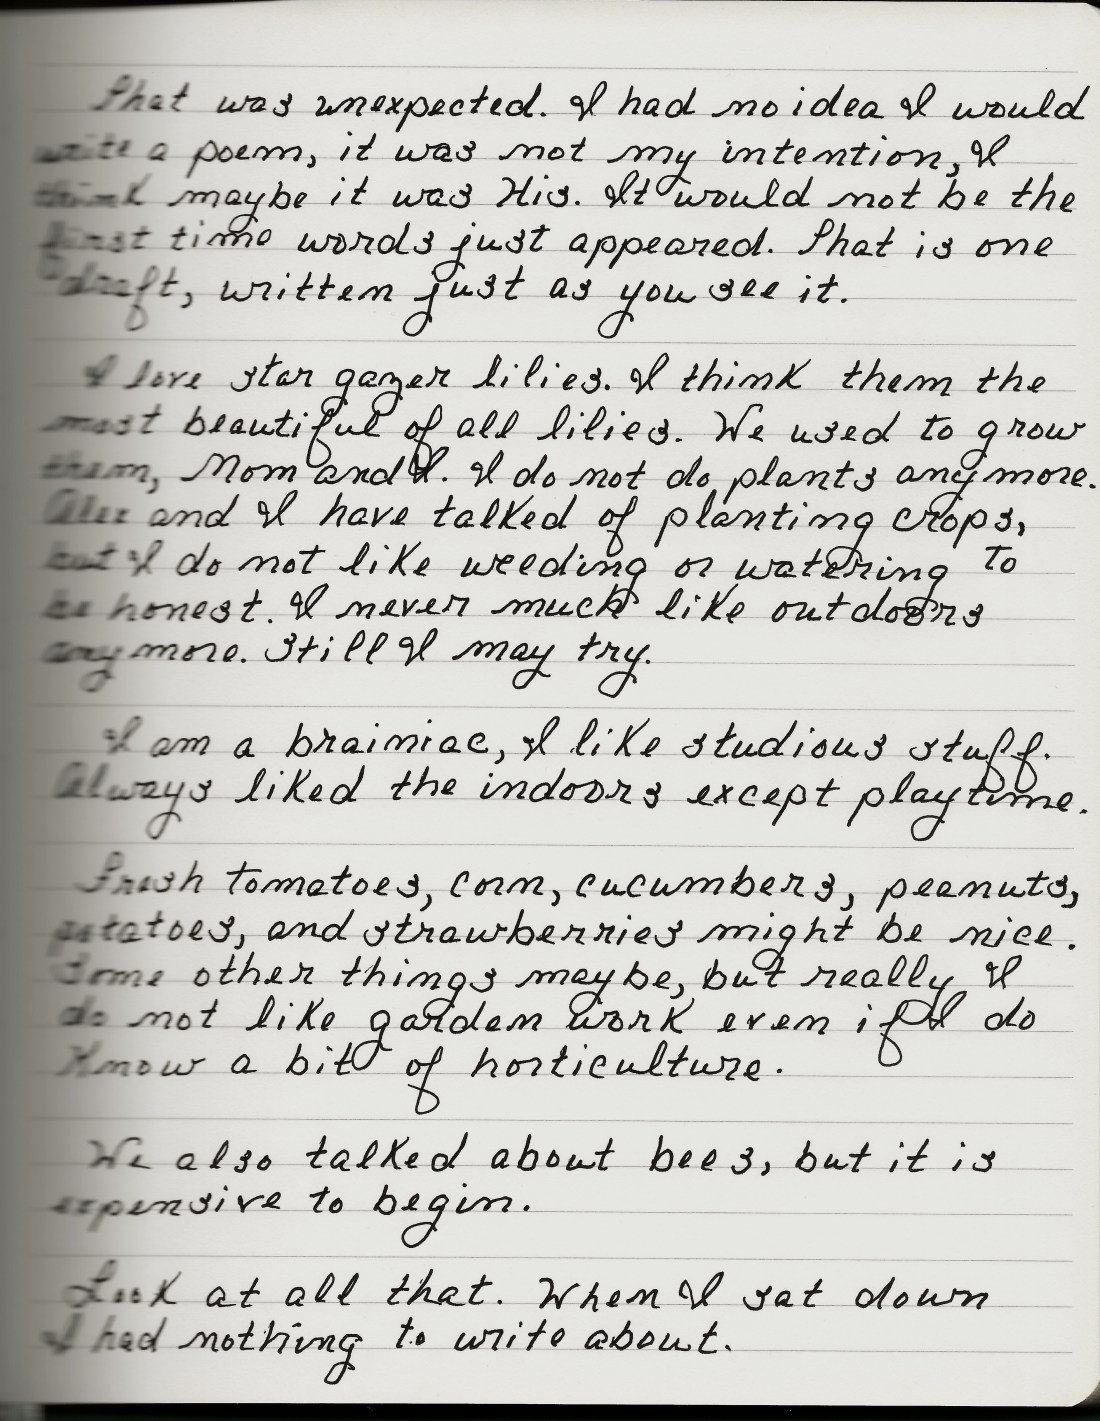 That was unexpected. I had no idea I would
write a poem, it was not my intention, I
think maybe it was His. It would not be the
first time words just appeared. That is one
draft, written just as you see it.
I love star gazer lilies. I think them the
most beautiful of all lilies. We used to grow
them, Mom and I. I do not do plants anymore.
Alex and I have talked of planting crops,
but I do not like weeding or watering to
be honest. I never much like outdoors
anymore. Still I may try.
I am a brainiac, I like studious stuff.
Always liked the indoors except playtime.
Fresh tomatoes, corn, cucumbers, peanuts,
potatoes, and strawberries might be nice.
Some other things maybe, but really I
do not like garden work even if I do
Know a bit of horticulture.
We also talked about bees, but it is
expensive to begin.
Look at all that. When I sat down
I had nothing to write about.